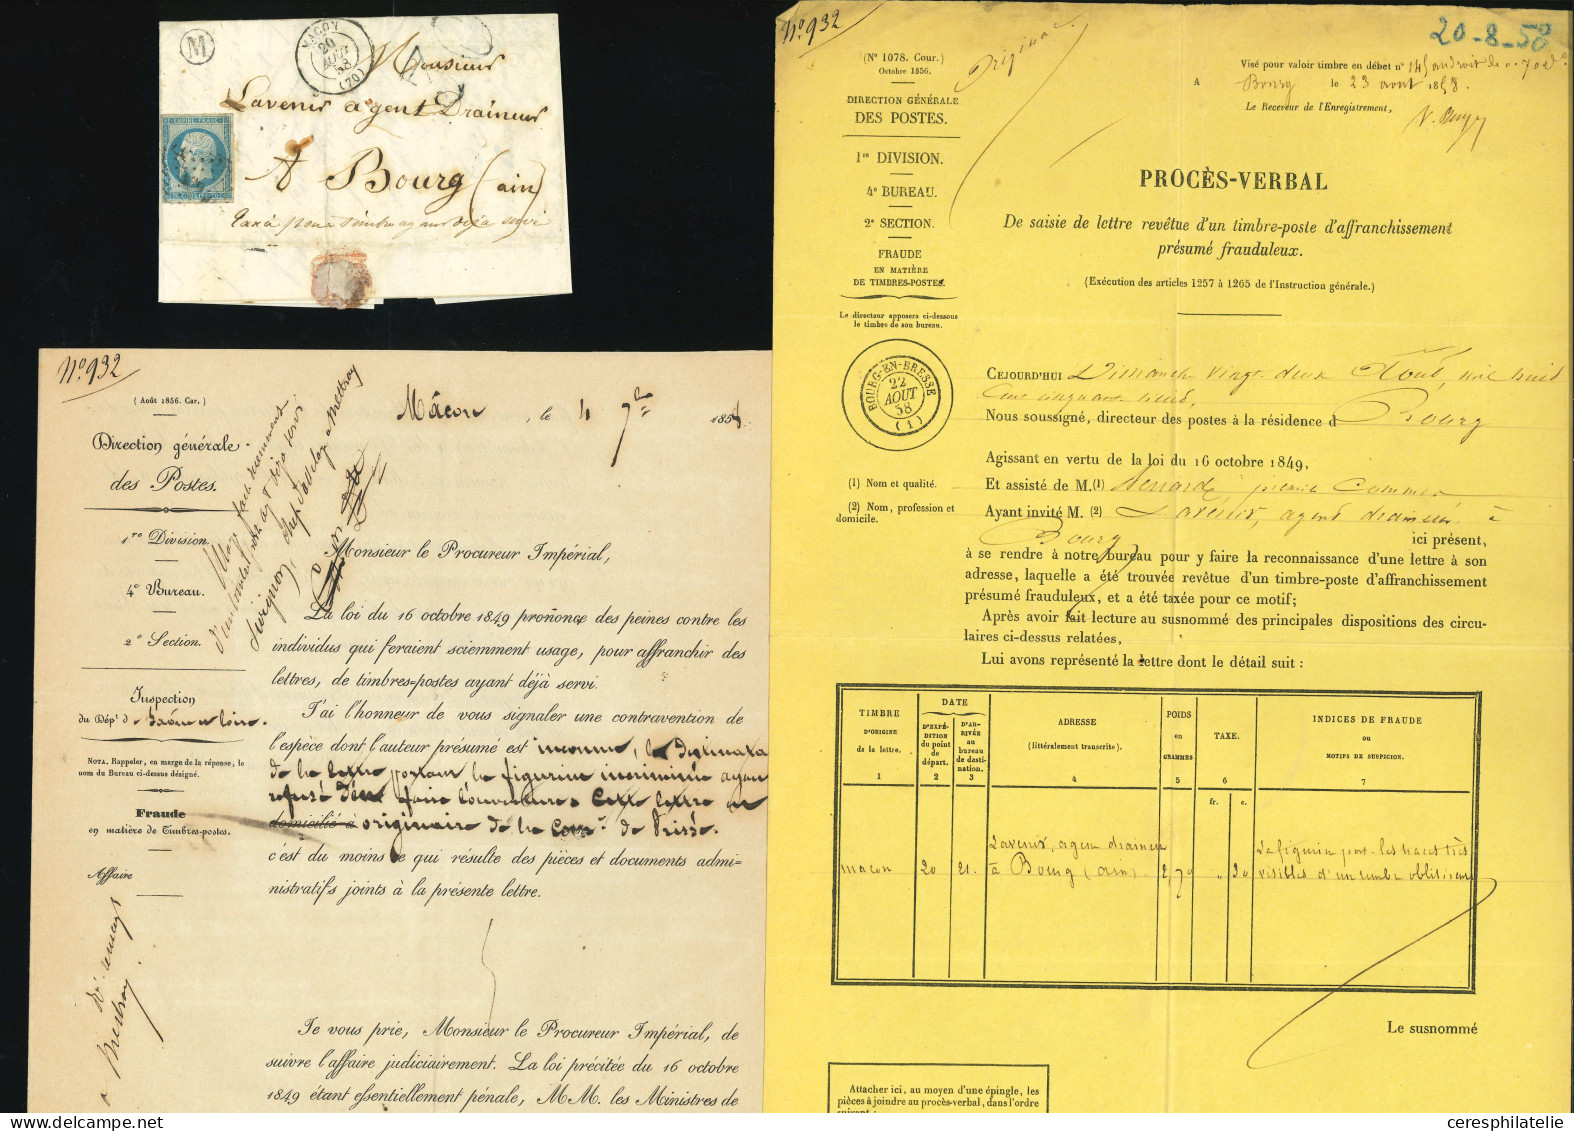 M
MACON
20
AOUT
58
(70)
Monsieur
Lavenir agent Draineur
EMPIRE FRANC
A Bourg (ain)
taxé pour timbre ayant déjà servi
N° 932
(Août 1856. Car.)
Direction générale
des Postes.
1re Division.
4e Bureau.
2e Section.
Inspection
du Dépt de Saône et Loire.
NOTA. Rappeler, en marge de la réponse, le
nom du Bureau ci-dessus désigné.
Fraude
en matière de Timbres-postes.
Affaire
Mâcon, le 4 7bre 1858.
Monsieur le Procureur Impérial,
La loi du 16 octobre 1849 prononce des peines contre les
individus qui feraient sciemment usage, pour affranchir des
lettres, de timbres-postes ayant déjà servi.
J'ai l'honneur de vous signaler une contravention de
l'espèce dont l'auteur présumé est inconnu, le Destinata
de la lettre portant la figurine incriminée ayan
refusé d'en faire l'ouverture. Cette lettre est
domicilié à originaire de la Come de Prissé.
c'est du moins ce qui résulte des pièces et documents admi-
nistratifs joints à la présente lettre.
Je vous prie, Monsieur le Procureur Impérial, de
suivre l'affaire judiciairement. La loi précitée du 16 octobre
1849 étant essentiellement pénale, MM. les Ministres de
N° 932
Original.
20-8-58
(N° 1078. Cour.)
Octobre 1856.
DIRECTION GÉNÉRALE
DES POSTES.
1re DIVISION.
4e BUREAU.
2e SECTION.
FRAUDE
EN MATIÈRE
DE TIMBRES-POSTES.
Le directeur apposera ci-dessous
le timbre de son bureau.
BOURG-EN-BRESSE
22
AOUT
58
(1)
(1) Nom et qualité.
(2) Nom, profession et
domicile.
Visé pour valoir timbre en débet n° 145 au droit de 0.70c.
A Bourg le 23 aout 1858.
Le Receveur de l'Enregistrement,
PROCÈS-VERBAL
De saisie de lettre revêtue d'un timbre-poste d'affranchissement
présumé frauduleux.
(Exécution des articles 1257 à 1265 de l'Instruction générale.)
CEJOURD'HUI Dimanche vingt deux Août, mil huit
cent cinquante huit,
Nous soussigné, directeur des postes à la résidence d Bourg
Agissant en vertu de la loi du 16 octobre 1849,
Et assisté de M. (1) premier Commis
Ayant invité M. (2) Lavenir, agent draineur à
Bourg ici présent,
à se rendre à notre bureau pour y faire la reconnaissance d'une lettre à son
adresse, laquelle a été trouvée revêtue d'un timbre-poste d'affranchissement
présumé frauduleux, et a été taxée pour ce motif;
Après avoir fait lecture au susnommé des principales dispositions des circu-
laires ci-dessus relatées,
Lui avons représenté la lettre dont le détail suit :
TIMBRE
D'ORIGINE
de la lettre.
1
DATE
D'EXPÉ-
DITION du
point de
départ.
2
D'AR-
RIVÉE au
bureau
de desti-
nation.
3
ADRESSE
(littéralement transcrite).
4
POIDS
en
GRAMMES
5
TAXE.
6
fr. c.
INDICES DE FRAUDE
ou
MOTIFS DE SUSPICION.
7
macon 20 21. Lavenir, agen draineur
à Bourg (ain). 2,70 " 30 La figurin port les traces très
visibles d'un timbre oblitérant
Le susnommé
Attacher ici, au moyen d'une épingle, les
pièces à joindre au procès-verbal, dans l'ordre
suivant :
ceresphilatelie